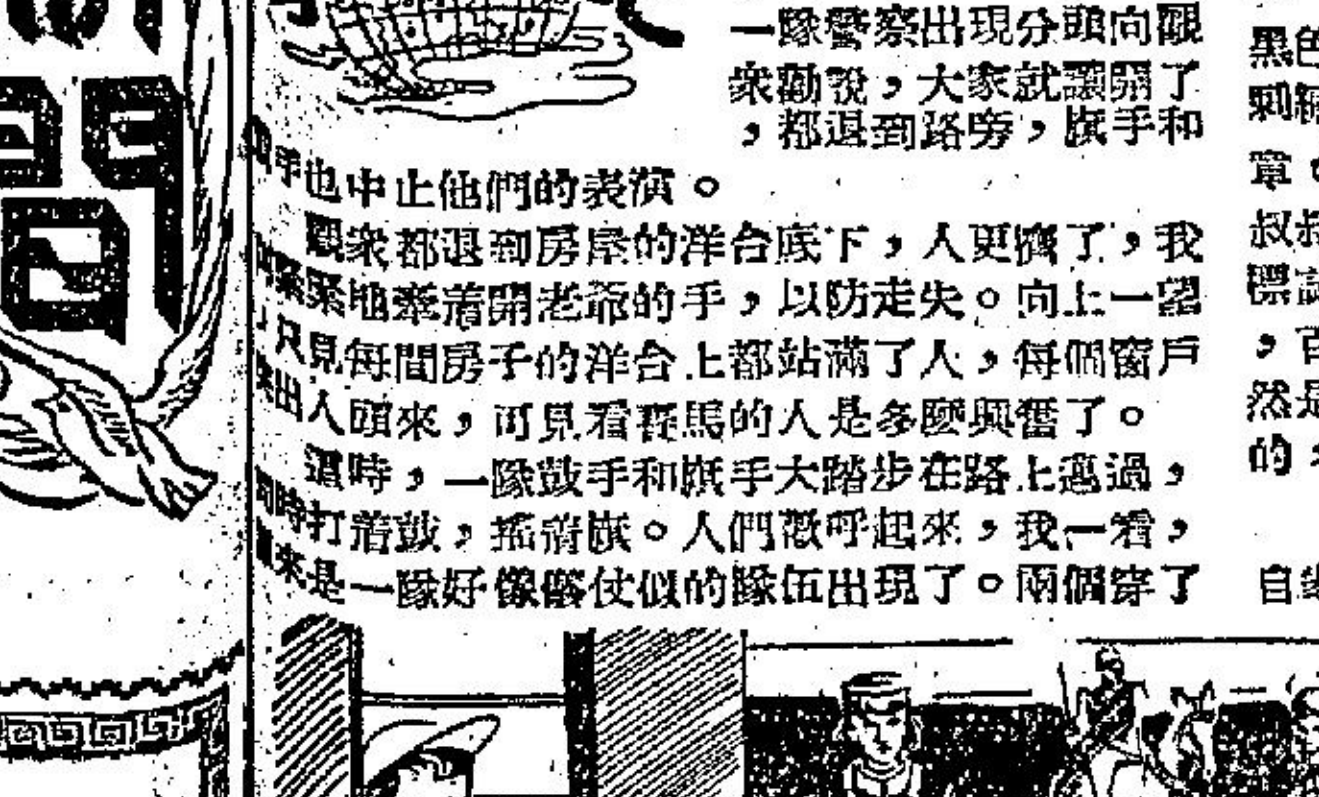 一隊警察出現分頭向觀
衆勸說，大家就讓開了
，都退到路旁，旗手和
手也中止他們的表演。
觀衆都退到房屋的洋台底下，人更擠了，我
緊緊地牽着開老爺的手，以防走失。向上一望
，只見每間房子的洋台上都站滿了人，每個窗戶
出人頭來，可見看賽馬的人是多麼興奮了。
這時，一隊鼓手和旗手大踏步在路上邁過，
同時打着鼓，搖着旗。人們歡呼起來，我一看，
來是一隊好像儀仗似的隊伍出現了。兩個穿了
黑色
刺
章。
叔叔
標誌
，百
然是
的，
自